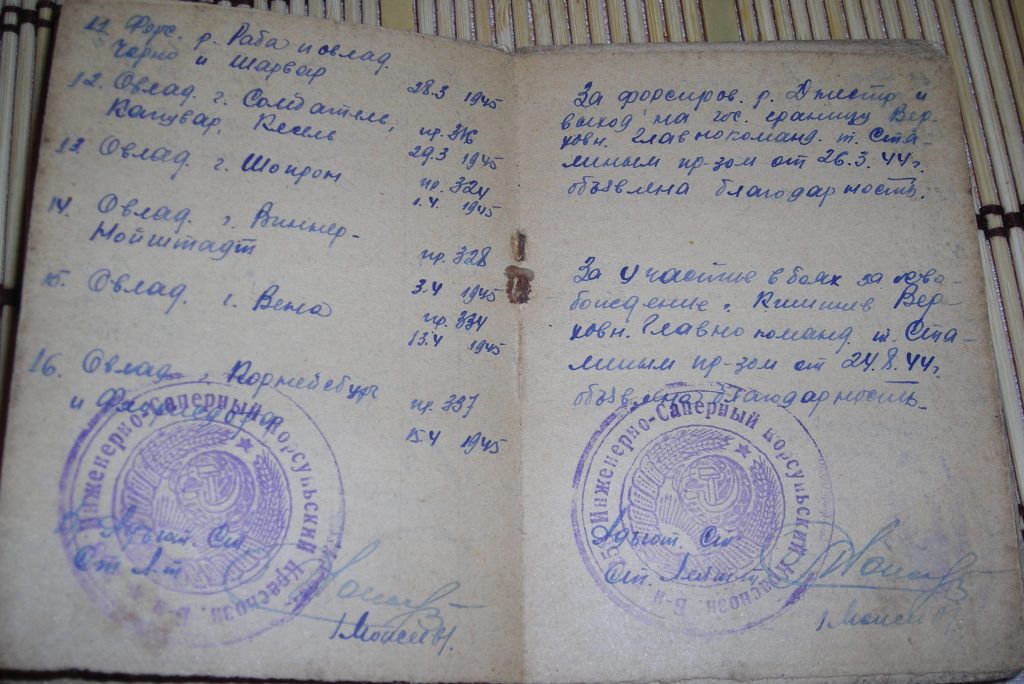 11. Форс. р. Раба и овлад.
Чорно и Шарвар
28.3 1945
12. Овлад. г. Сомбатель,
Капувар, Кесег
пр. 316
29.3 1945
13. Овлад. г. Шопрон
пр. 324
1.4 1945
14. Овлад. г. Виннер-
Нойштадт
пр. 328
3.4 1945
15. Овлад. г. Вена
пр. 334
13.4 1945
16. Овлад. г. Корнейбург
и
пр. 337
15.4 1945
Инженерно-Саперный Корсуньский Краснозн. Б-н
Адъют. Ст
Ст. Л-т
/Моисеев/
За форсиров. р. Днестр и
выход на гос. границу Вер-
ховн. Главнокоманд. т. Ста-
линым пр-зом от 26.3.44г.
объявлена благодарность.
За участие в боях за осво-
бождение г. Кишинев Вер-
ховн. Главнокоманд. т. Ста-
линым пр-зом от 24.8.44г.
объявлена благодарность.
Инженерно-Саперный Корсуньский Краснозн. Б-н
Адъют. Ст
Ст. Лейт-т
/Моисеев/